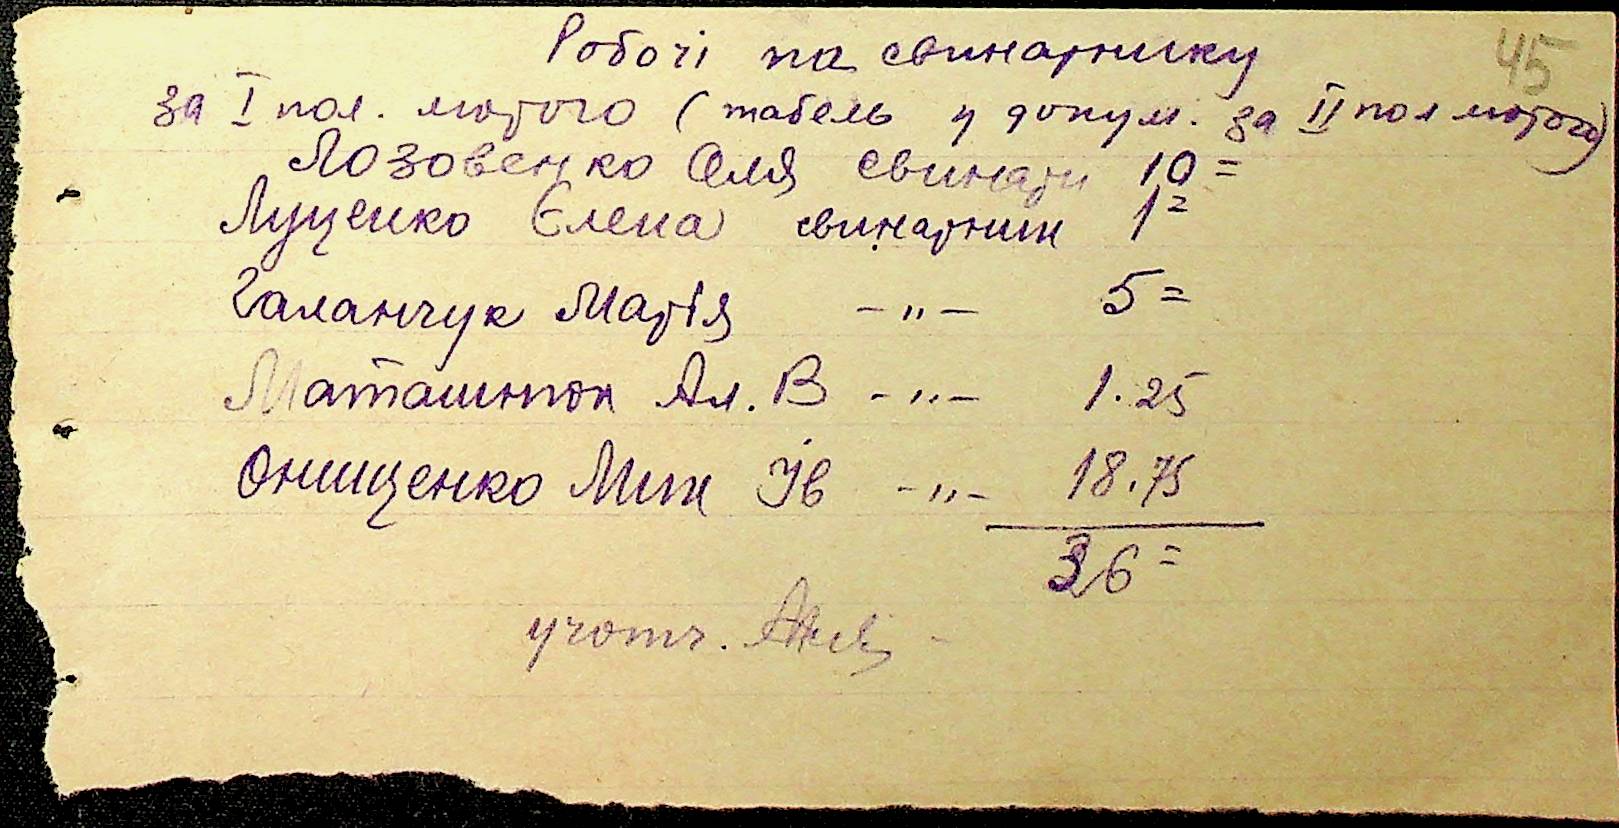 45
Робочі на свинарнику
за I пол. лютого (табель у докум. за II пол лютого)
Лозовенко Оля свинарн 10=
Луценко Єлена свинарник 1=
Галанчук Марія -"- 5=
Маташнюк Ал. В -"- 1.25
Онищенко Мих Ів -"- 18.75
36=
учотч.